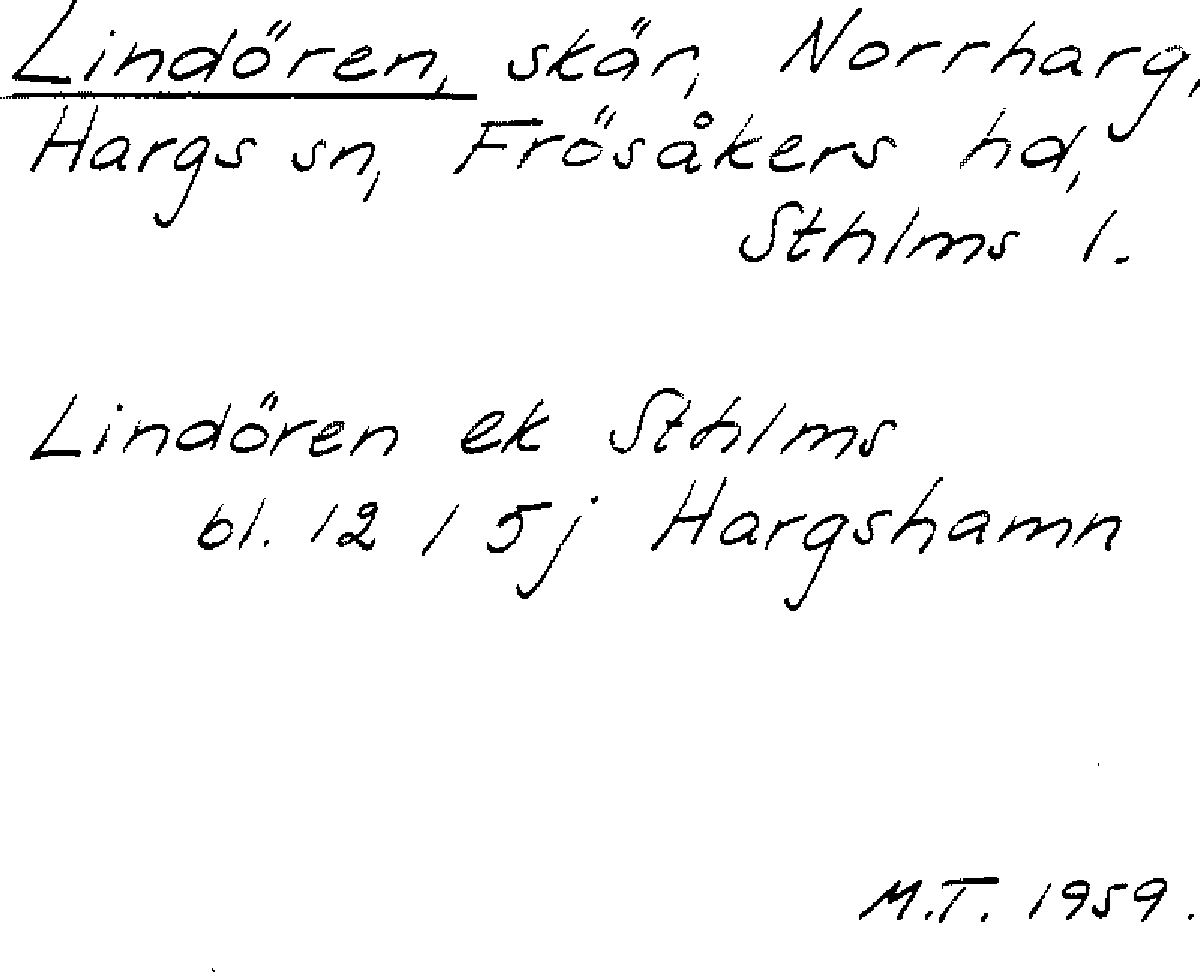 Lindören, skär, Norrharg,
Hargs sn, Frösåkers hd,
Sthlms l.
Lindören ek Sthlms
bl. 12 / 5 j Hargshamn
M.T. 1959.